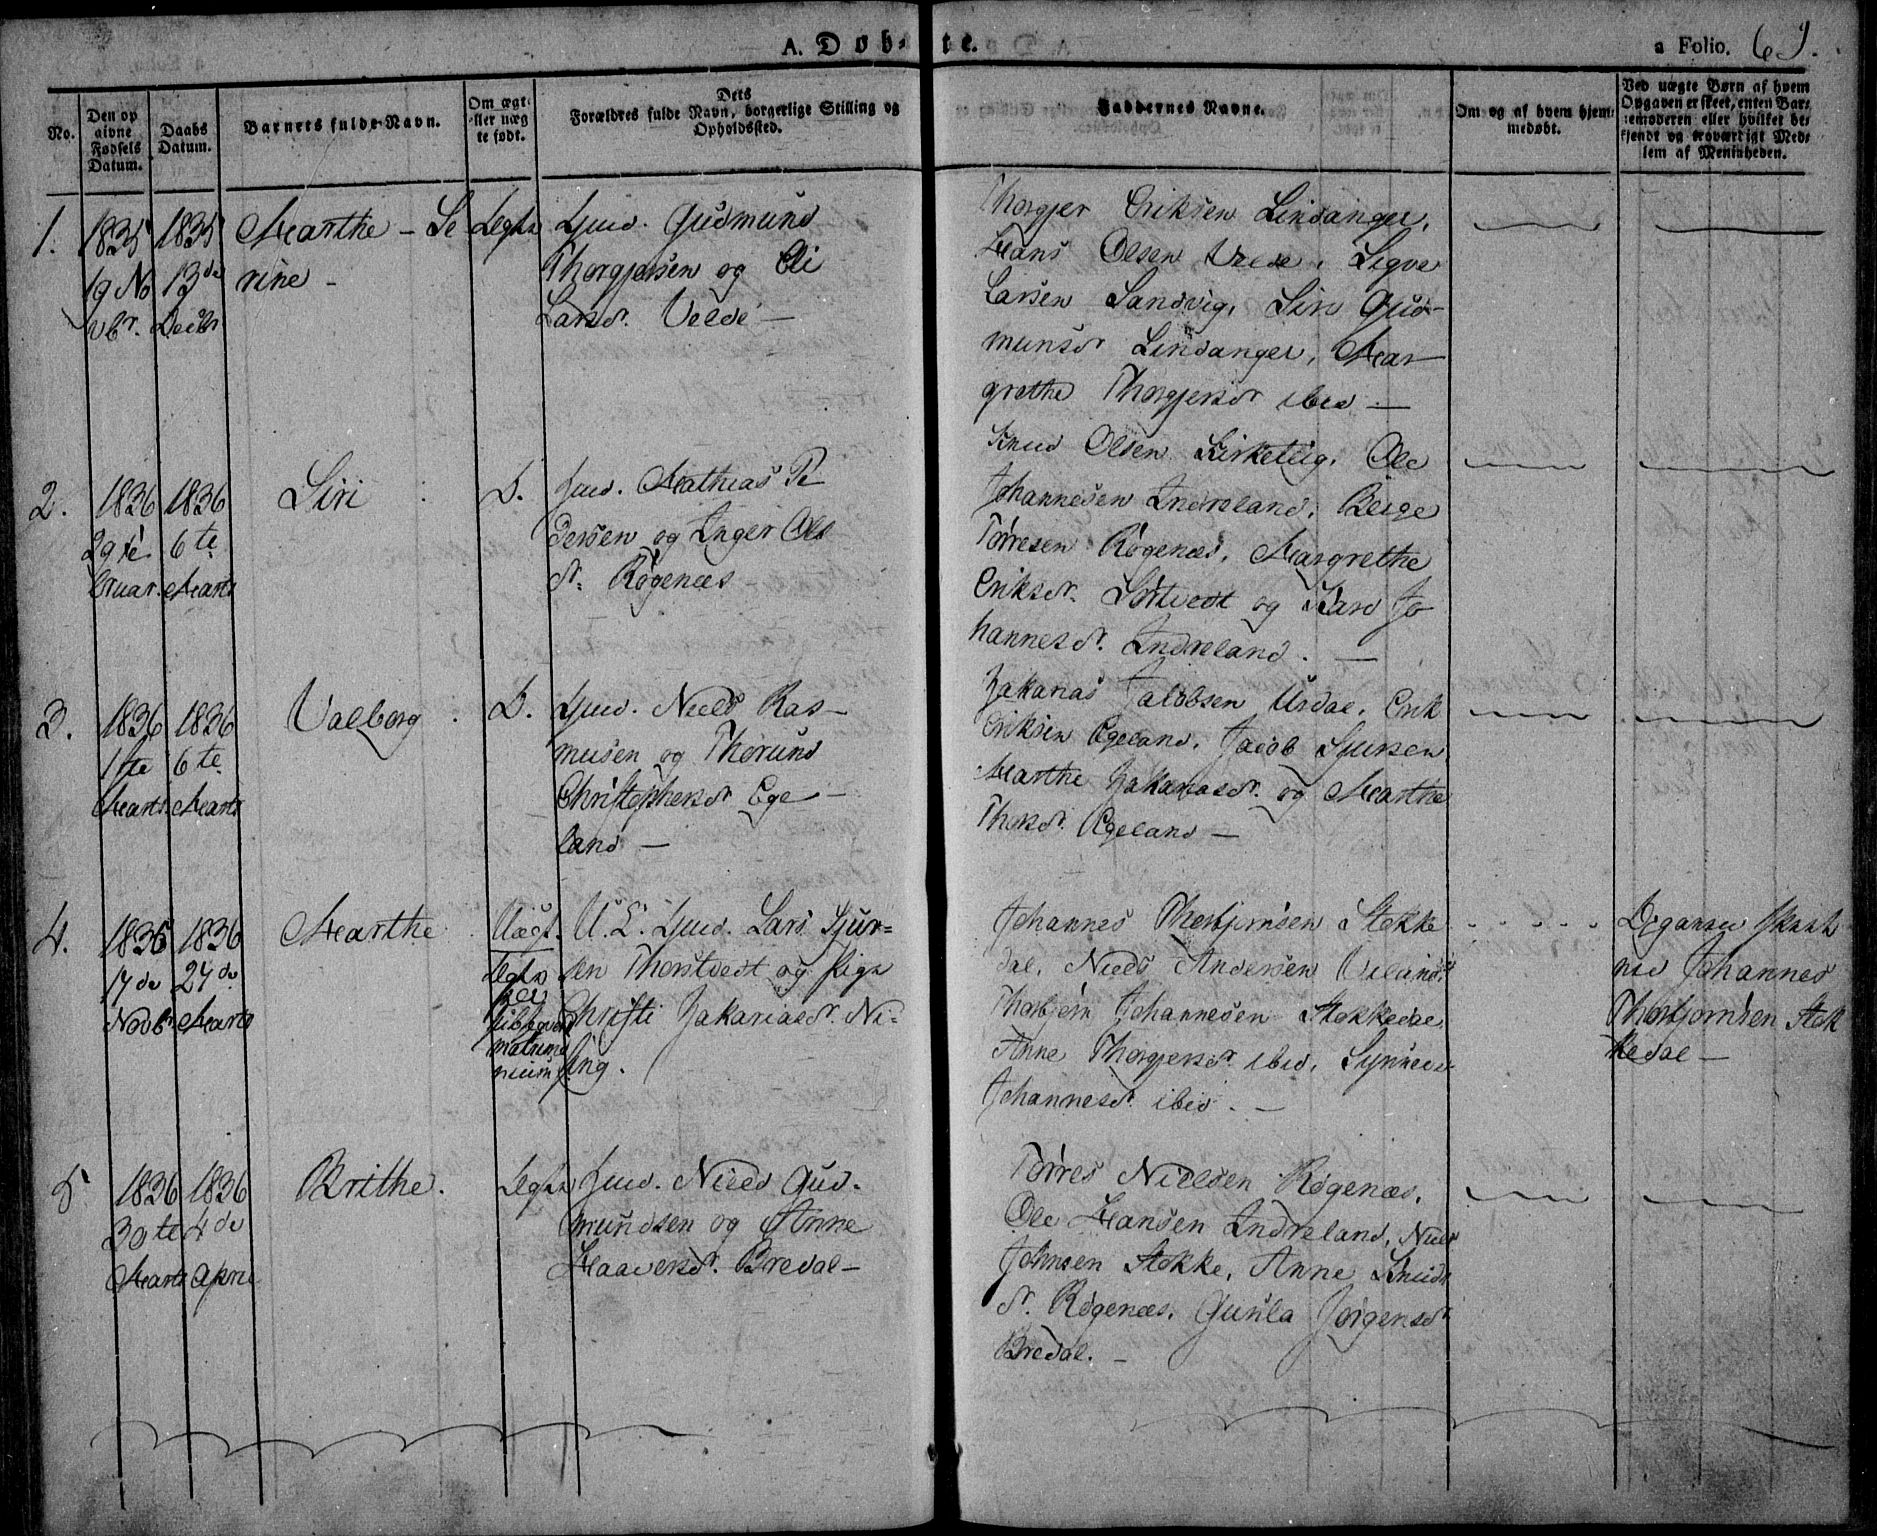 A. Døb-te.
a Folio. 69.
No.
Den op
givne
Fødsels
Datum.
Daabs
Datum.
Barnets fulde Navn.
Om ægt-
eller uæg
te født.
Dets
Forældres fulde Navn, borgerlige Stilling og
Opholdssted.
Faddernes Navne.
Om og af hvem hjem-
medøbt.
Ved uægte Børn af hvem
Opgaven er skeet, enten Bar-
nemoderen eller hvilket be-
kjendt og troværdigt Med-
lem af Menigheden.
1.
1835
19 No
vbr.
1835
13de
Decbr
Marthe - Se
rine -
Legts
Gmd. Gudmund
Thorgjersen og Eli
Larsdr. Velde -
Thorgjer Eriksen Lindanger,
Hans Olsen
Sigve
Larsen Sandvig, Siri Gud-
munsdr Lindanger, Mar
grethe Thorgjersdr ibid -
2.
1836
29 Fe
bruar.
1836
6te
Marts
Siri
L.
Gmd. Mathias Pe
dersen og Inger Ols
dr. Røgenæs -
Knud Olsen Kirketeig, Ole
Johannesen Indreland, Berge
Tørresen Røgenæs, Margrethe
Eriksdr. Sørtvedt og Kari Jo
hannesdr. Indreland. -
3.
1836
1ste
Marts
1836
6te
Marts
Valborg.
L.
Gmd. Niels Ras-
musen og Thorund
Christophersdr Ege-
land -
Zakarias Jakobsen Urdal, Erik
Eriksen Egeland, Jacob Sjursen
Marthe Zakariasdr. og Marthe
Thorsdr. Egeland -
4.
1835
17de
Novbr
1836
27de
Marts
Marthe
Uægt.
Legts
per
subseqvens
matrimo
nium
U. C. Gmd. Lars Sjur-
sen Thorstvedt og Pige
Christi Zakariasdr. Ni-
sing.
Johannes Thorbjørnsen Stokke
dal, Niels Andersen
Thorbjørn Johannesen Stokkedal,
Anne Thorgjersdr ibid, Synneve
Johannesdr. ibid. -
Johannes
Thorbjørnsen Stok
kedal -
5
1836
30te
Marts
1836
4de
April
Brithe.
Legts
Gmd. Niels Gud-
mundsen og Anne
Haaversdr. Bredal -
Tørres Nielsen Røgenæs,
Ole Hansen Indreland, Niels
Johnsen Stokke, Anne Knuds
dr. Røgenæs, Gunla Jørgensdr
Bredal. -